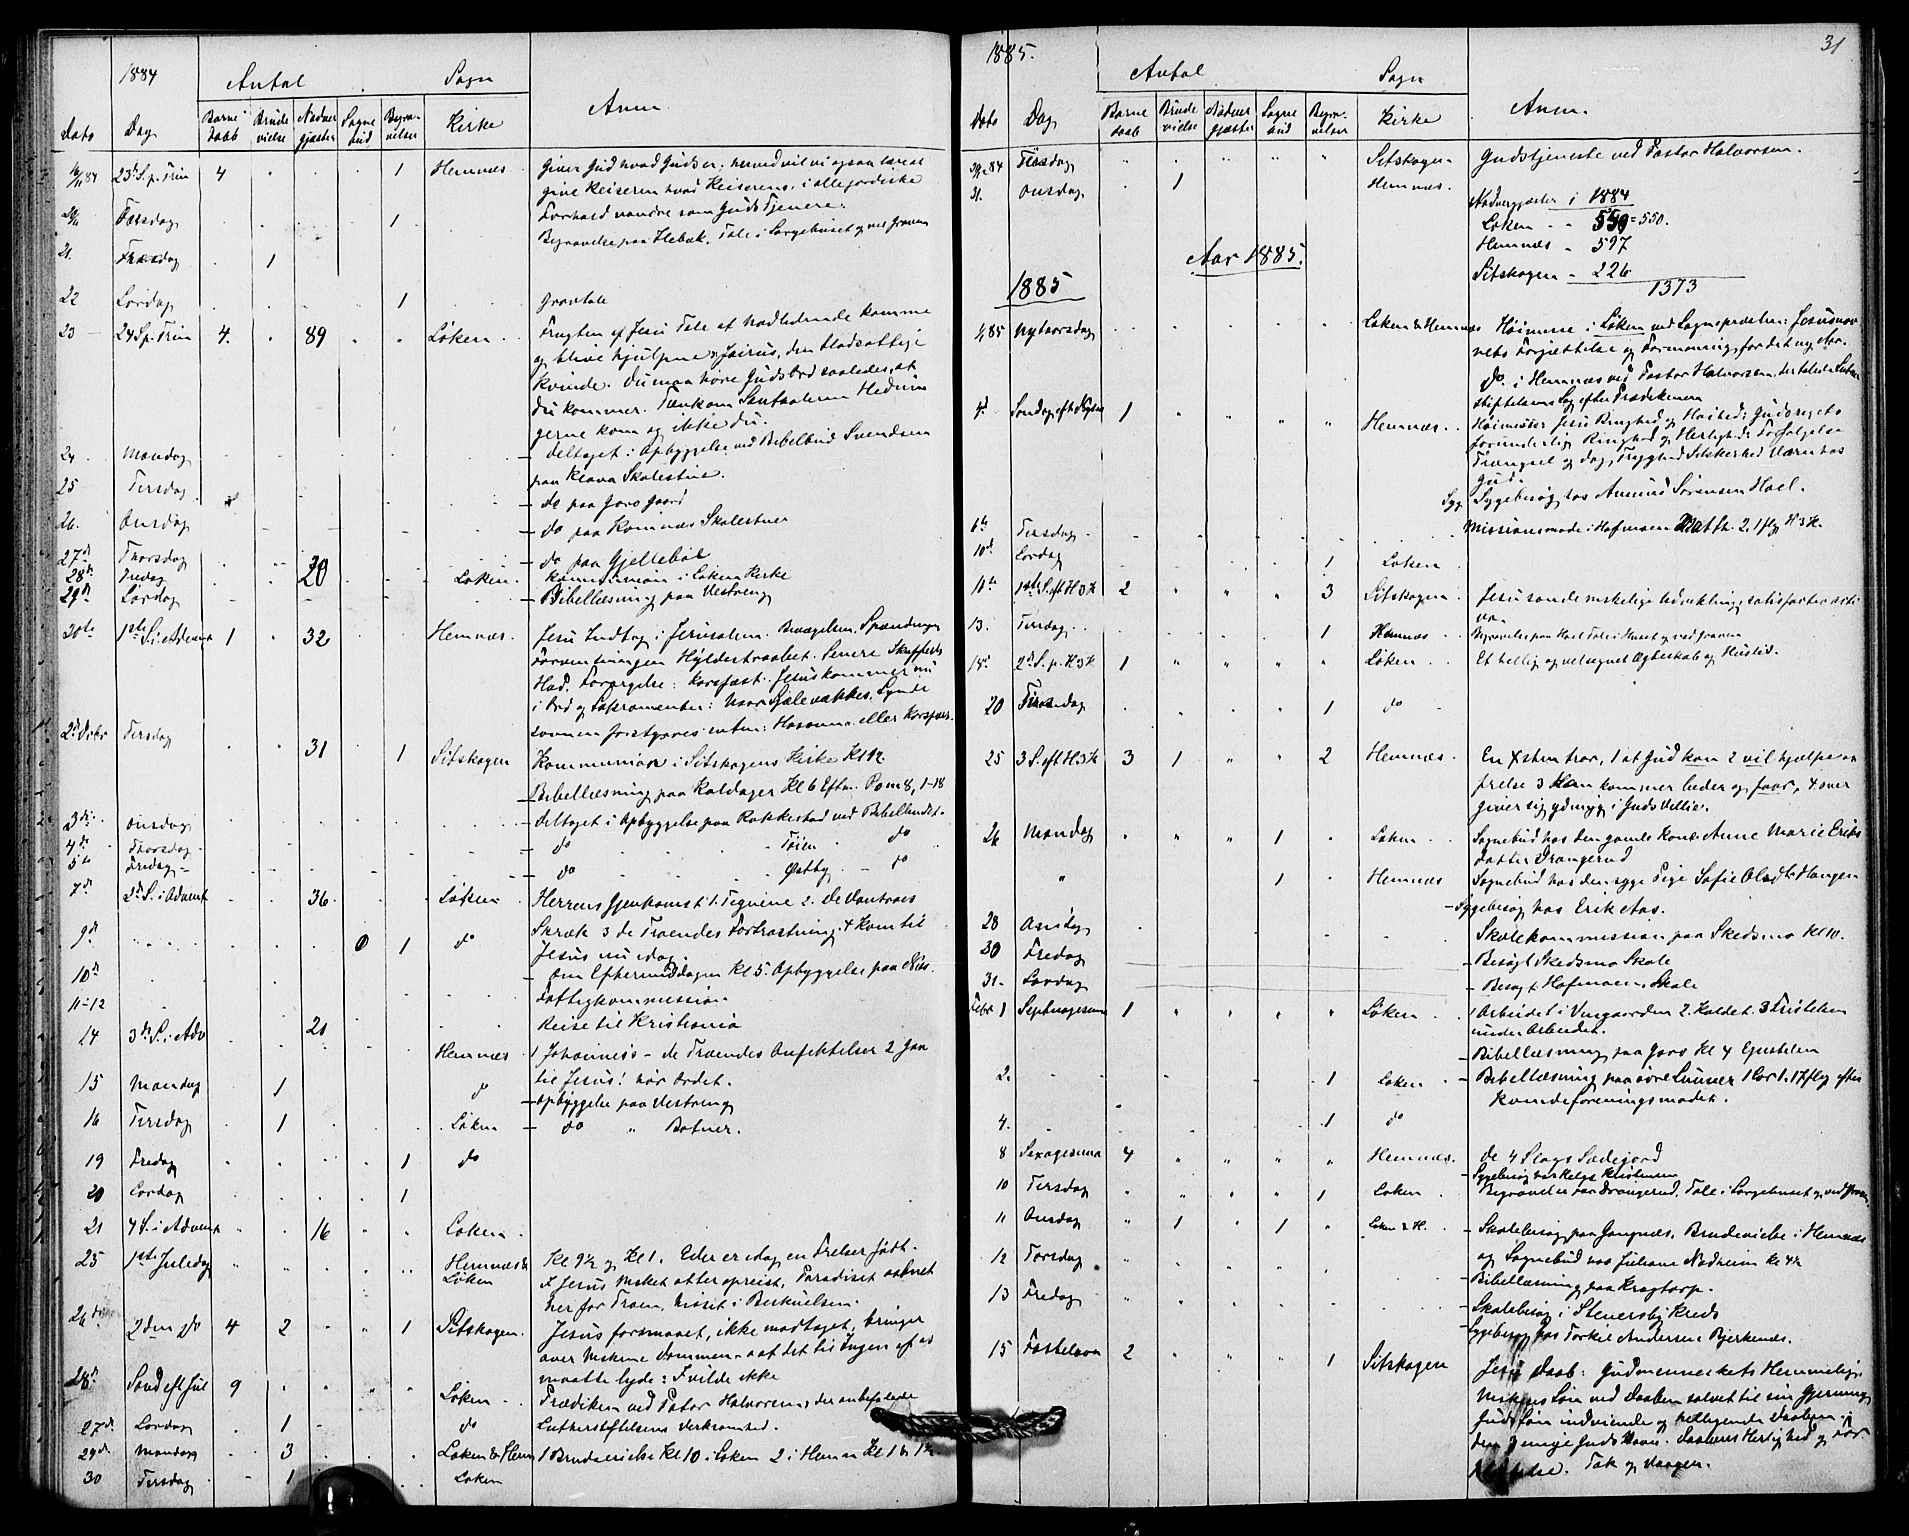 1884
Antal Sogn
Dato Dag Barne daab Brude vielse Nadver gjæster Sogne bud Begra- velser Kirke Anm
16/11 84 23d S. p. Trin 4 1 Hemnæs Giver Gud hvad Guds er: herved vil vi ogsaa lære at
give Keiseren hvad Keiserens, i alle jordiske
Forhold vandre som Guds Tjenere.
Tirsdag 1 Begravelse paa Hebæk. Tale i Sørgehuset og ved Graven
21. 1
22 Lørdag 1 Gravtale
23 24 S. p. Trin 4. 89 Løken Frugten af Jesu Tale at Nødlidende komme
og blive hjulpne: Jairus, den blodsottige
Kvinde. Du maa høre Guds Ord saaledes, at
du kommer. Tænk om Hedning
gerne kom og ikke du.
24 Mandag - deltaget i Opbyggelse ved Bibelbud Svendsen
paa Krova Skolestue.
25 Tirsdag - do paa Jaro Gaard
26. Onsdag - do paa Komnæs Skolestuer
27d Thorsdag - do paa Gjellebøl
28d Fredag 20 Løken. Kommunion i Løken Kirke
29d Lørdag - Bibellæsning paa Vestreng
30te 1ste S. i Advent 1 32 Hemnæs. Jesu Indtog i Jerusalem. Bevægelsen, Spændingen
Forventningen Hyldestraabet. Senere Skuffelse
Had. Forargelse: Korsfæst. Jesus kommer nu
i Ord og Sakramenter: Naar Sjæle vækkes, Synde
søvnen forstyrres enten: Hosanna eller Korsfæst.
2d Decbr Tirsdag 31 1 Sitskogen Kommunion i Sitskogens Kirke
- Bibellæsning paa Koldager Kl 6 Eftm. Rom 8, 1-18
3die Onsdag - deltaget i Opbyggelse paa Rakkestad ved Bibelbudet.
4de Thorsdag - do Töien do
5te Fredag - do Østby do
7de 2d S. i Advent 36 Løken Herrens Gjenkomst 1. Tegnene 2. de Vantroes
Skræk 3 de Troendes Fortrøstning. 4 Kom til
Jesus nu idag.
9de 0 1 do - Om Eftermiddagen Kl 5. Opbyggelse paa
10de Fattigkommission
11-12 Reise til Kristiania
14 3de S. i Adv 21 Hemnæs 1 Johannes's - de Troendes Anfektelser 2 Gaa
til Jesus! hør Ordet.
15 Mandag 1 do - Opbyggelse paa Vestreng
16 Tirsdag 1 Løken - do " Botner.
19 Fredag 1 do
20 Lørdag 1
21 4 S. i Advent 16 Løken
25 1ste Juledag Hemnæs & Løken Kl 9½ og Kl 1. Eder er idag en Frelser født.
I Jesus Msket atter opreist, Paradiset aabnet
her for Troen,
26de 2den do 4 2 1 Sitskogen. Jesus forsmaaet, ikke modtaget, bringer
over Mskene Dommen - at det til Ingen af os
maatte lyde: I vilde ikke
28de Sønd eft Jul 9 Løken Prædiken ved Pastor Halvorsen, der anbefalede
27de Lørdag 1 do Lutherstiftelsens Verksomhed.
29de Mandag 3 Løken & Hem 1 Brudevielse Kl 10 i Løken 2 i Hemn Kl 1 & 1½
30 Tirsdag 1 Løken
31
1885.
Antal Sogn
Dato Dag Barne daab Brude vielse Nadver gjæster Sogne bud Begra- velser Kirke Anm.
Tirsdag Sitskogen Gudstjeneste ved Pastor Halvorsen.
31. Onsdag 1 Hemnæs.
Nadvergjæster i 1884
Løken - - 550 = 550.
Hemnæs - 597
Sitskogen - 226
1373
Aar 1885.
1885
1/1 85 Nytaarsdag Løken & Hemnæs Høimesse i Løken ved Sognepræsten: Jesusnav
nets Forjættelse og Formaning for det ny Aar.
do i Hemnæs ved Pastor Halvorsen, der talede Luther
stiftelsens Sag efter Prædikenen
4d Søndag eft Nytaar 1 Hemnæs Høimesse: Jesu Ringhed og Høihed: Gudsrigets
forunderlig Ringhed og Herlighed: Forfølgelse
Trængsel og dog, Tryghed Sikkerhed Værn hos
Gud.
Syg. Sygebesøg hos Sørensen Hoel.
6te Tirsdag Missionsmøde i Hofmoen Matth. 2. 1 flg H 3 K.
10d Lørdag 1 Løken
11te 1ste S. eft H 3 K 2 3 Sitskogen Jesu sande mskelige Udvikling,
13. Tirsdag 1 Hemnæs Begravelse paa Hoel Tale i Huset og ved Graven
18d 2d S. p. H 3 K 1 Løken Et hellig og velsignet Ægteskab og Husliv.
20 Tirsdag 1 do
25 3 S. eft H. 3 K 3 1 2 Hemnæs. En Xsten tror, 1 at Gud kan 2 vil hjælpe og
frelse 3 Han kommer beder og faar, 4 over
giver sig ydmyg i Guds Villie.
26 Mandag 1 Løken Sognebud hos den gamle Kone Anne Marie Eriks
datter Drangerud
" 1 Hemnæs Sognebud hos den syge Pige Sofie Olsdtr Haugen
- Sygebesøg hos Erik Aas.
28 Onsdag Skolekommission paa Skedsmo Kl 10.
30 Fredag - Besøgt Skedsmo Skole
31. Lørdag - Besøgt Hofmoens Skole
Febr 1 Septuagesima 1 Løken 1 Arbeidet i Vingaarden 2. Kaldet. 3 Fristelsen
under Arbeidet.
- Bibellæsning paa Jaro Kl 4 Epistelen
2. 1 Løken - Bibellæsning paa øvre Lunner 1 Cor 1. 17 flg efter
Kvindeforeningsmødet.
4. 1 do
8 Sexagesima 4 Hemnæs. de 4 Slags Sædejord
- Sygebesøg
10 Tirsdag 1 Løken Begravelse paa Drangerud, Tale i Sørgehuset og ved Graven
11 Onsdag 1 1 Løken & H. - Skolebesøg paa Gangnæs, Brudevielse i Hemnæs
og Sognebud hos Juliane Nadheim Kl 4½
12 Torsdag - Bibellæsning paa Krogtorp.
13 Fredag - Skolebesøg i Stenersby Kreds
- Sygebesøg hos Torkil Andersen Bjerknæs.
15 Fastelavn 2 1 Sitskogen Jesu Daab: Gudmenneskets Hemmelighed
Mskens Søn ved Daaben salvet til sin Gjerning
Guds Søn indviende og helligende Daaben i
den Guds Navn. Daabens Herlighed og
Tak og Vaagen.